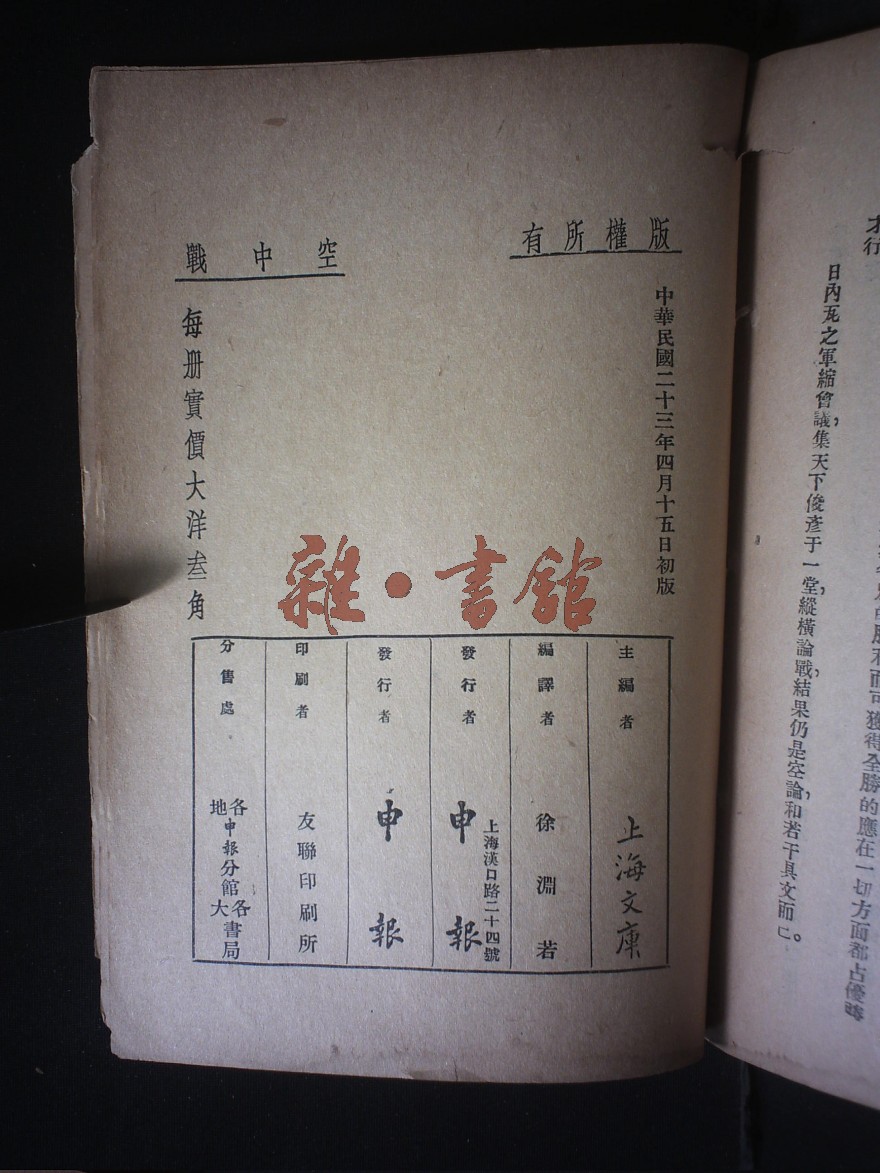 版權所有
中華民國二十三年四月十五日初版
空中戰
每册實價大洋叁角
雜・書館
主編者 上海文庫
編譯者 徐淵若
發行者 申報
上海漢口路二十四號
發行者 申報
印刷者 友聯印刷所
分售處 各地申報分館
各大書局
行
日內瓦之軍縮會議,集天下俊彥于一堂,縱橫論戰,結果仍是空論,和若干具文而已。
而可獲得全勝的應在一切方面都占優勢